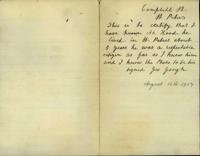 Campbell St
St Peters
This is to certify that I
have known Ah Hood he
lived in St. Peters about
5 years he was a respectable
citizen as far as I knew him
and I know the Photo to be his
signed Geo Gough
August 16th 1909